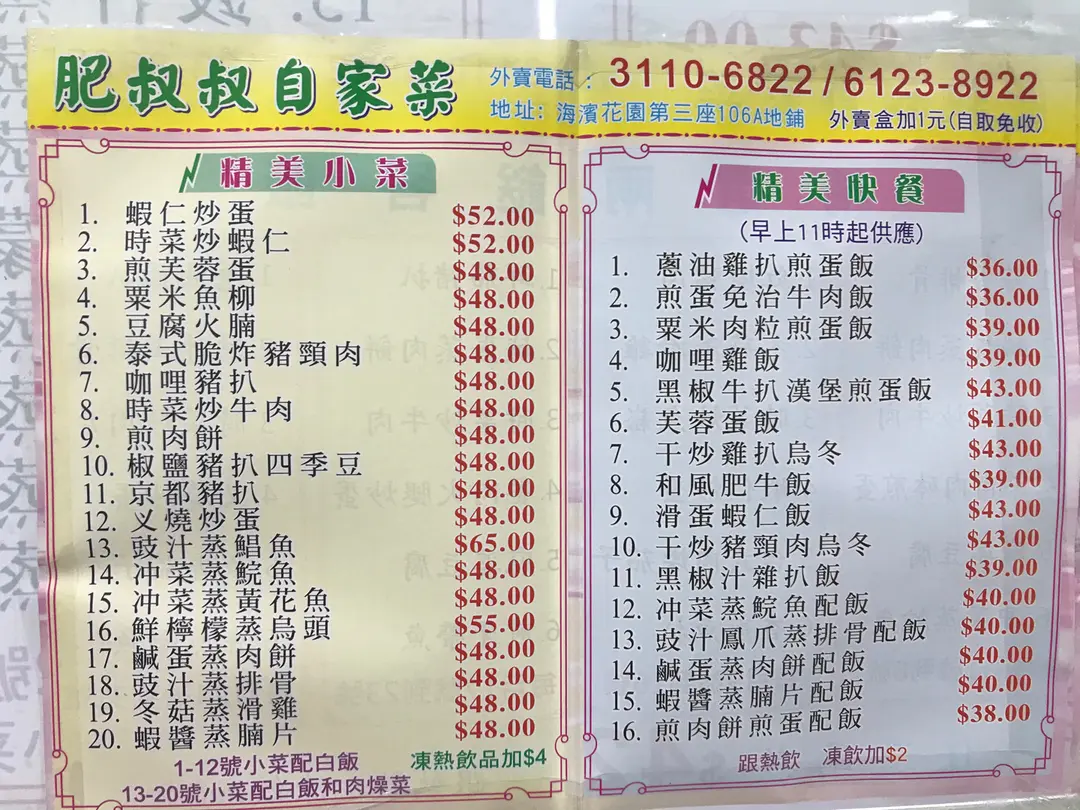 肥叔叔自家菜
外賣電話：3110-6822/6123-8922
地址：海濱花園第三座106A地鋪 外賣盒加1元(自取免收)
精美小菜
1. 蝦仁炒蛋 $52.00
2. 時菜炒蝦仁 $52.00
3. 煎芙蓉蛋 $48.00
4. 粟米魚柳 $48.00
5. 豆腐火腩 $48.00
6. 泰式脆炸豬頸肉 $48.00
7. 咖哩豬扒 $48.00
8. 時菜炒牛肉 $48.00
9. 煎肉餅 $48.00
10. 椒鹽豬扒四季豆 $48.00
11. 京都豬扒 $48.00
12. 叉燒炒蛋 $48.00
13. 豉汁蒸鯧魚 $65.00
14. 冲菜蒸鯇魚 $48.00
15. 冲菜蒸黃花魚 $48.00
16. 鮮檸檬蒸烏頭 $55.00
17. 鹹蛋蒸肉餅 $48.00
18. 豉汁蒸排骨 $48.00
19. 冬菇蒸滑雞 $48.00
20. 蝦醬蒸腩片 $48.00
1-12號小菜配白飯 凍熱飲品加$4
13-20號小菜配白飯和肉燥菜
精美快餐
(早上11時起供應)
1. 蔥油雞扒煎蛋飯 $36.00
2. 煎蛋免治牛肉飯 $36.00
3. 粟米肉粒煎蛋飯 $39.00
4. 咖哩雞飯 $39.00
5. 黑椒牛扒漢堡煎蛋飯 $43.00
6. 芙蓉蛋飯 $41.00
7. 干炒雞扒烏冬 $43.00
8. 和風肥牛飯 $39.00
9. 滑蛋蝦仁飯 $43.00
10. 干炒豬頸肉烏冬 $43.00
11. 黑椒汁雜扒飯 $39.00
12. 冲菜蒸鯇魚配飯 $40.00
13. 豉汁鳳爪蒸排骨配飯 $40.00
14. 鹹蛋蒸肉餅配飯 $40.00
15. 蝦醬蒸腩片配飯 $40.00
16. 煎肉餅煎蛋配飯 $38.00
跟熱飲 凍飲加$2